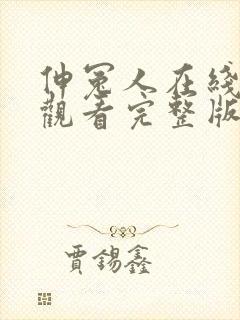 伸冤人在綫
觀看完整版
賈錫鑫